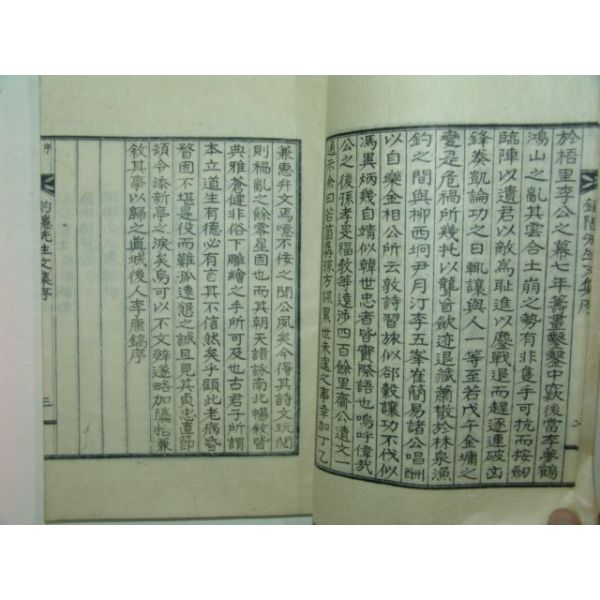 於梧里李公之幕七年籌畫鑿鑿中窾後當李夢鶴
鴻山之亂其雲合土崩之勢有非隻手可抗而按劒
臨陣以遺君以敵為恥進以鏖戰退而趕逐連破凶
鋒奏凱論功之日輒讓與人一等至若戊午金墉之
變是危禍所幾托以聾盲歛迹退藏蕭散於林泉漁
釣之間與柳西坰尹月汀李五峯崔簡易諸公唱酬
以自樂金相公所云敦詩習旅似郤縠讓功不伐似
馮異炳幾自靖似韓世忠者皆實際語也嗚呼偉哉
公之後孫孝旻福敎等遠涉四百餘里齎公遺文一
示余曰若
世朱遑之事幸加丁乙
二
兼惠弁文焉噫不佞之聞公夙矣今得其詩文玩閱
則禍亂之餘零星固也而其朝天諸詠南北暢敘皆
典雅蒼健非俗下雕繪之手所可及也古君子所謂
本立道生有德必有言其不信然矣乎顧此老病昏
瞀固不堪是役而難孤遠慈之誠且見其貞忠直節
頻令添新亭之淚矣烏可以不文辭遂略加隣
敘其事以歸之眞城後人李康鎬序
序
釣隱先生文集序
三